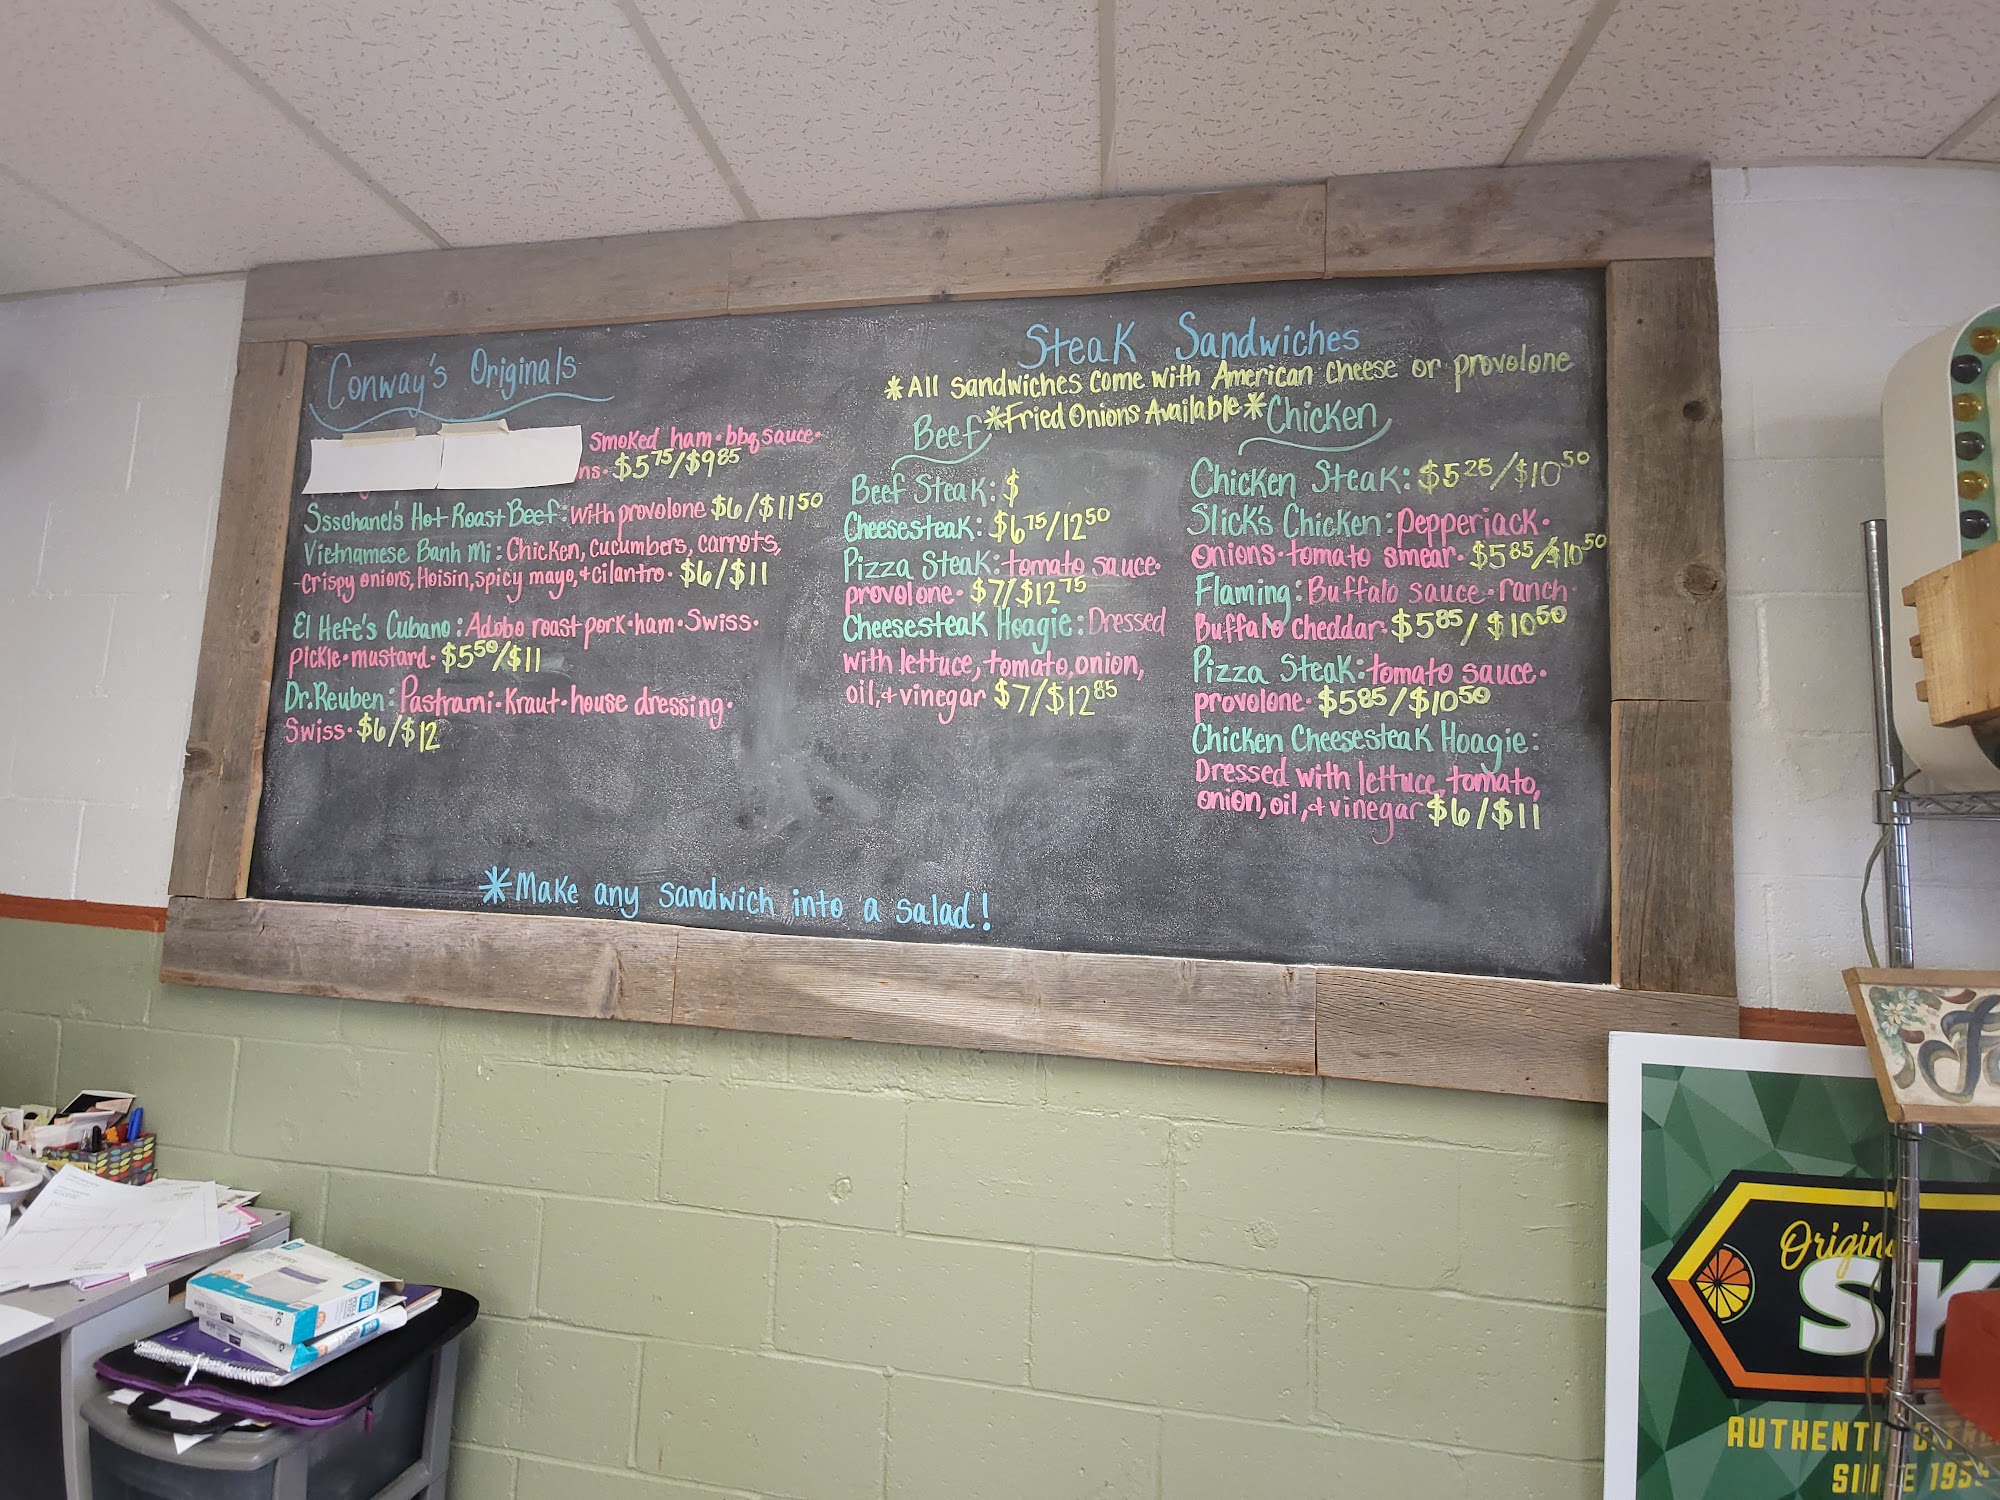 Conway's Originals
Smoked ham • bbq sauce •
ns • $5.75/$9.85
Ssschanel's Hot Roast Beef: with provolone $6/$11.50
Vietnamese Banh Mi: Chicken, cucumbers, carrots,
-crispy onions, Hoisin, spicy mayo, + cilantro • $6/$11
El Hefe's Cubano: Adobo roast pork • ham • Swiss •
pickle • mustard • $5.50/$11
Dr. Reuben: Pastrami • Kraut • house dressing •
Swiss • $6/$12
Steak Sandwiches
*All sandwiches come with American cheese or provolone
*Fried Onions Available*
Beef
Beef Steak: $
Cheesesteak: $6.75/12.50
Pizza Steak: tomato sauce •
provolone • $7/$12.75
Cheesesteak Hoagie: Dressed
with lettuce, tomato, onion,
oil, + vinegar $7/$12.85
Chicken
Chicken Steak: $5.25/$10.50
Slick's Chicken: Pepperjack •
onions • tomato smear • $5.85/$10.50
Flaming: Buffalo sauce • ranch •
Buffalo cheddar • $5.85/$10.50
Pizza Steak: tomato sauce •
provolone • $5.85/$10.50
Chicken Cheesesteak Hoagie:
Dressed with lettuce, tomato,
onion, oil, + vinegar $6/$11
*Make any sandwich into a salad!
Origin
SK
AUTHENTI
SINCE 195